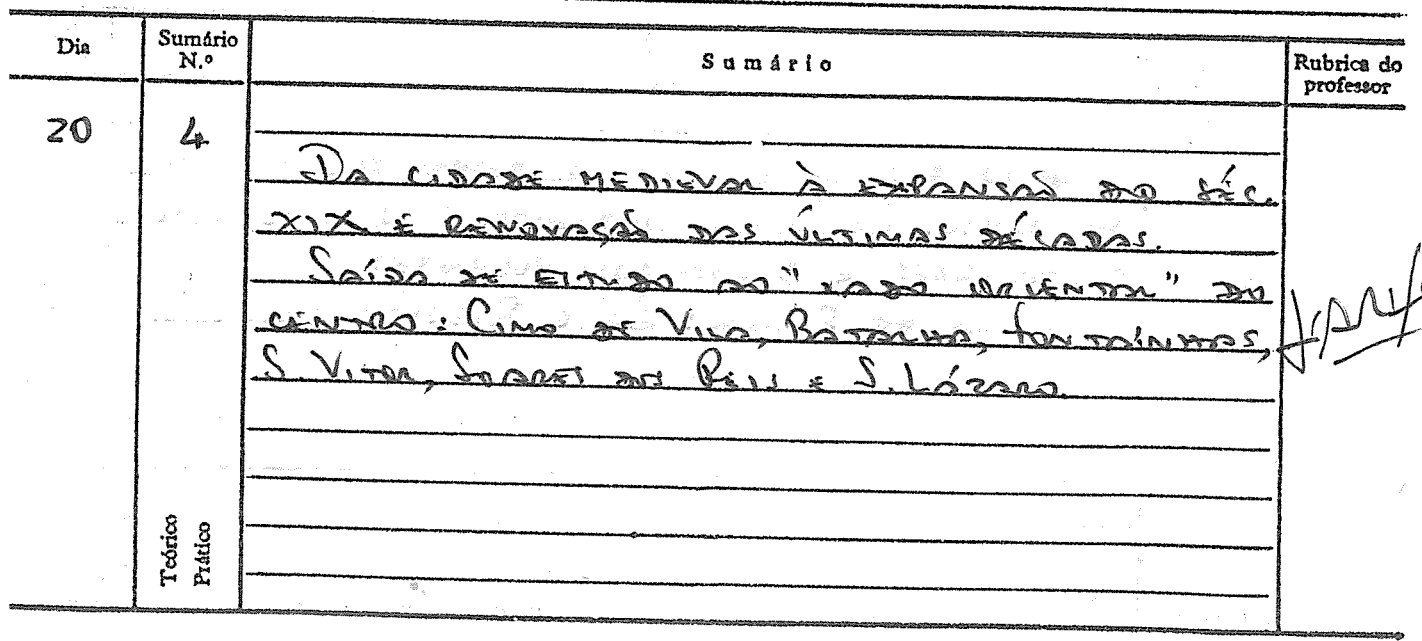 Dia
Sumário N.º
Sumário
Rubrica do professor
20
4
DA CIDADE MEDIEVAL À EXPANSÃO DO SÉC.
XIX E RENOVAÇÃO DAS ÚLTIMAS DÉCADAS.
SAÍDA DE ESTUDO AO "LADO ORIENTAL" DO
CENTRO: CIMO DE VILA, BATALHA, FONTAÍNHAS,
S. VITOR, SOARES DOS REIS E S. LÁZARO.
Teórico
Prático